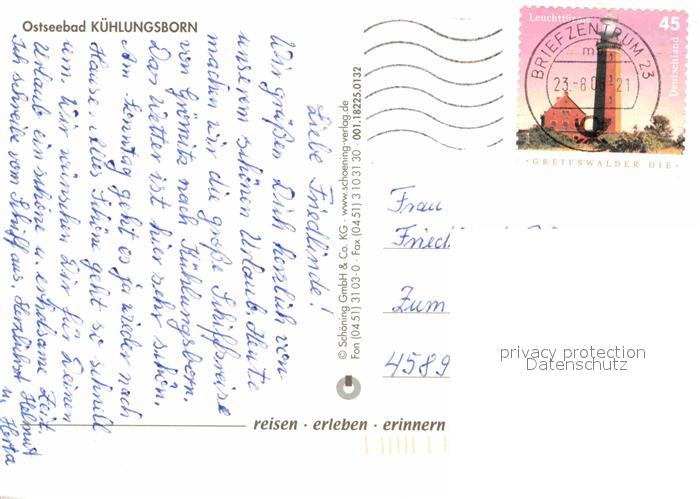 Ostseebad KÜHLUNGSBORN
Liebe Friedlinde!
Wir grüßen Dich herzlich von
unserem schönen Urlaub. Heute
machen wir die große Schiffsreise
von Grömitz nach Kühlungsborn.
Das Wetter ist hier sehr schön.
Am Sonntag geht es ja wieder nach
Hause. Alles Schöne geht so schnell
um. Wir wünschen Dir für Deinen
Urlaub eine schöne u. erholsame Zeit.
Ich schreibe vom Schiff aus. Herzlichst Helmut
u. Herta
© Schöning GmbH & Co. KG · www.schoening-verlag.de
Fon (04 51) 31 03-0 · Fax (04 51) 3 10 31 30 · 001.18225.0132
reisen · erleben · erinnern
Leuchttürme
45
Deutschland
GREIFSWALDER OIE
BRIEFZENTRUM 23
23.-8.06-21
Frau
Fried
Zum
4589
privacy protection
Datenschutz